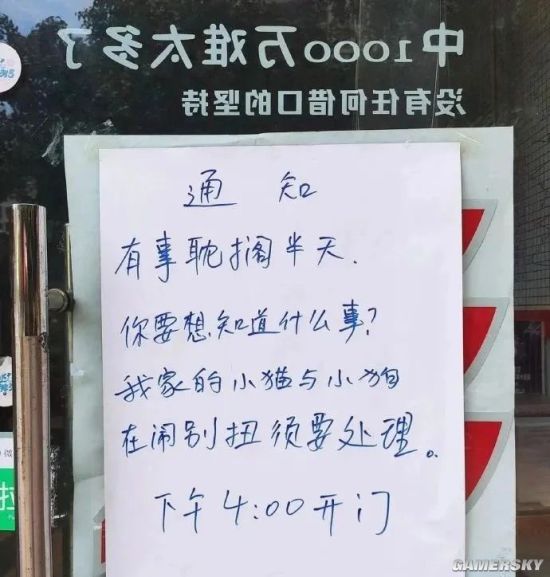 中1000万难太多了
没有任何借口的坚持
通 知
有事耽搁半天.
你要想知道什么事?
我家的小猫与小狗
在闹别扭须要处理。
下午4:00开门
拉
GAMERSKY